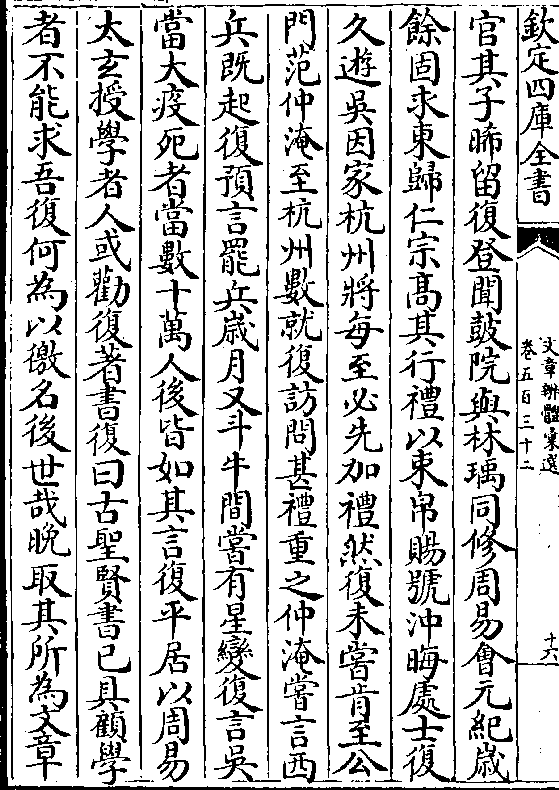 欽定四庫全書
文章辨體彙選
卷五百三十二
十六
官其子晞留復登聞鼓院與林瑀同修周易會元紀歲
餘固求東歸仁宗高其行禮以束帛賜號沖晦處士復
久遊吳因家杭州將每至必先加禮然復未嘗肯至公
門范仲淹至杭州數就復訪問甚禮重之仲淹嘗言西
兵既起復預言罷兵歲月又斗牛間嘗有星變復言吳
當大疫死者當數十萬人後皆如其言復平居以周易
太玄授學者人或勸復著書復曰古聖賢書已具顧學
者不能求吾復何為以徼名後世哉晚取其所為文章